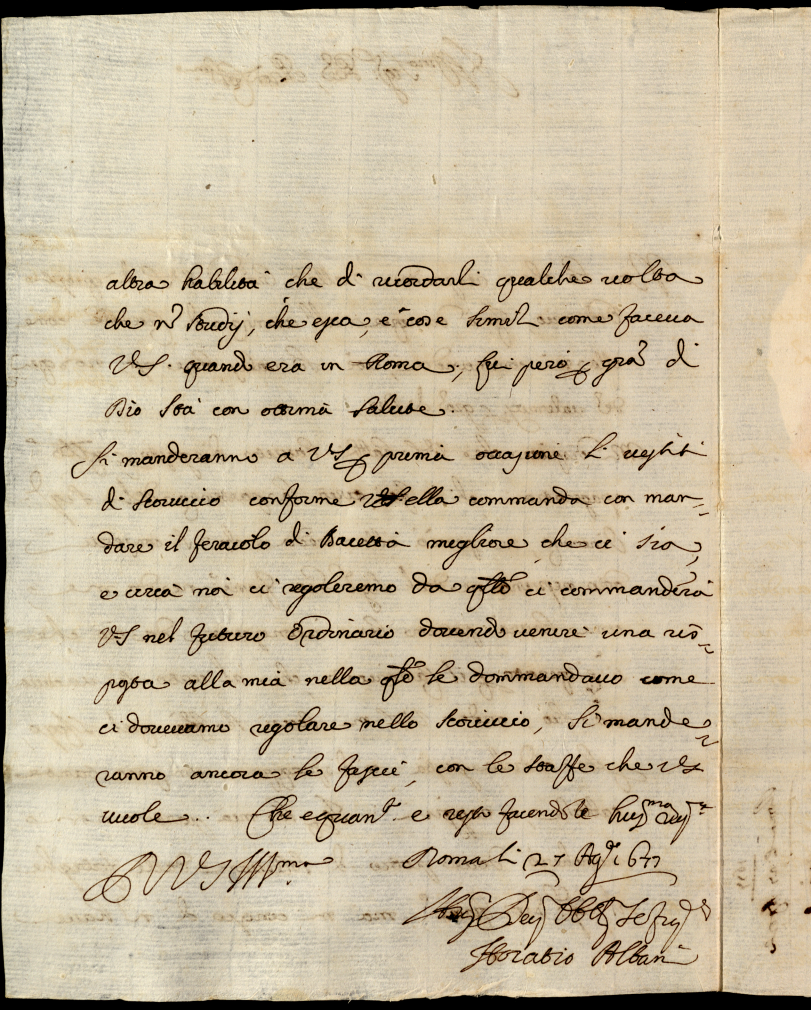 altra habilità che di ricordarli qualche uolta
che n'i studij, che esca, e cose simili come faceua
VS. quand era in Roma, qui però p gra di
Dio sta con ottima salute.
Si manderanno a VS p prima occasione li uestiti
di scoruccio conforme ella commanda con man-
dare il feraiolo di Baietta megliore che ci sia,
e circa noi ci regoleremo da qto ci commanderà
VS nel futuro ordinario douend uenire una ris-
posta alla mia nella qle le dommandauo come
ci doueuamo regolare nello scoruccio, Si mande-
ranno ancora le fascie, con le staffe che VS
uuole.. Che e quant e resto facendole hum.ma riu.a
D VS Ill.ma Roma li 27 Ag.o 1677
Hum Deu Obl Se
Horatio Albani